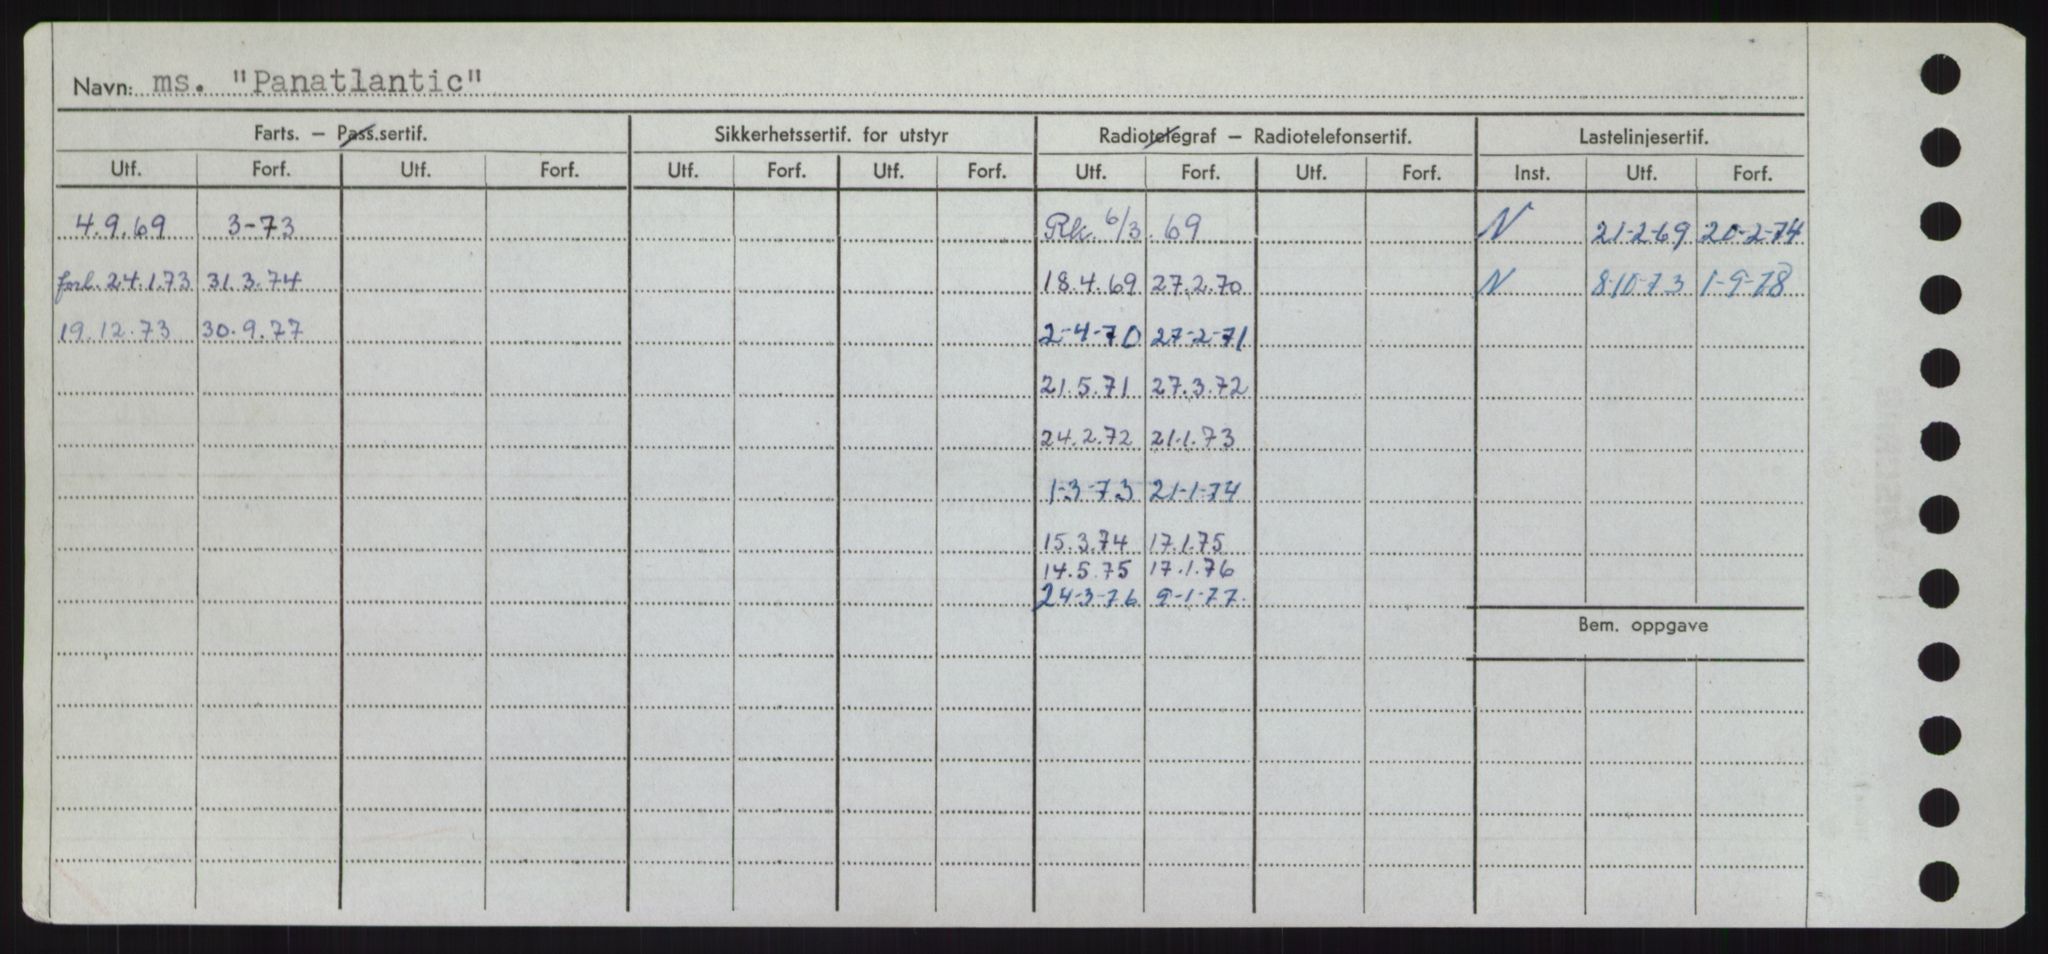 Navn: ms. "Panatlantic"
Farts. – Pass.sertif. Sikkerhetssertif. for utstyr Radiotelegraf – Radiotelefonsertif. Lastelinjesertif.
Utf. Forf. Utf. Forf. Utf. Forf. Utf. Forf. Utf. Forf. Utf. Forf. Inst. Utf. Forf.
4.9.69 3-73 Rk. 6/3.69 N 21-2-69 20-2-74
forl. 24.1.73 31.3.74 18.4.69 27.2.70 N 8-10-73 1-9-78
19.12.73 30.9.77 2-4-70 27-2-71
21.5.71 27.3.72
24.2.72 21.1.73
1-3-73 21-1-74
15.3.74 17.1.75
14.5.75 17.1.76
24-3-76 9-1-77
Bem. oppgave